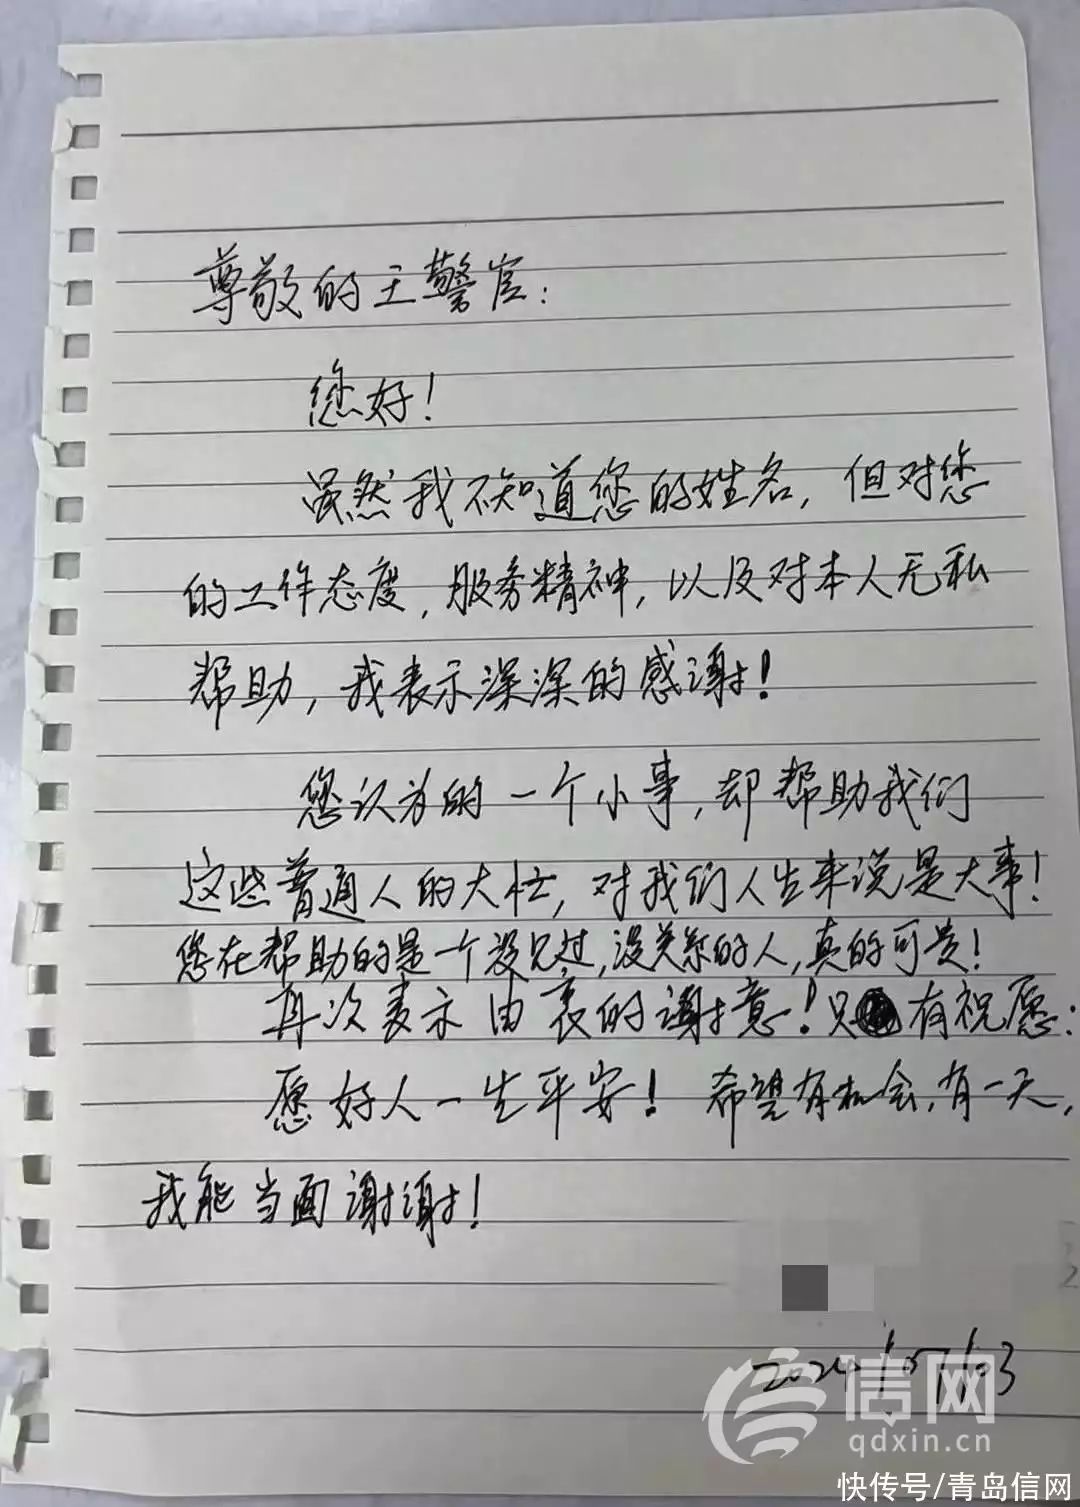 尊敬的王警官：
您好！
虽然我不知道您的姓名，但对您
的工作态度，服务精神，以及对本人无私
帮助，我表示深深的感谢！
您认为的一个小事，却帮助我们
这些普通人的大忙，对我们人生来说是大事！
您在帮助的是一个没见过，没关系的人，真的可贵！
再次表示由衷的谢意！只有祝愿：
愿好人一生平安！希望有机会，有一天，
我能当面谢谢！
2024/05/03
信网
qdxin.cn
快传号/青岛信网